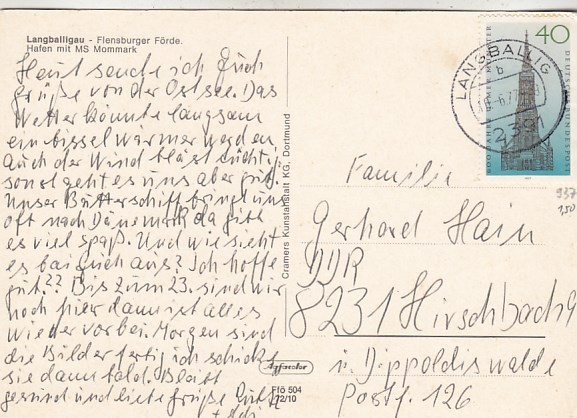 Langballigau - Flensburger Förde.
Hafen mit MS Mommark
Heut sende ich Euch
Grüße von der Ostsee. Das
Wetter könnte langsam
ein bissel wärmer werden,
Auch der Wind bläst tüchtig
sonst geht es uns aber gut.
Unser Butterschiff bringt uns
oft nach Dänemark da gibt
es viel Spaß. Und wie sieht
es bei Euch aus? Ich hoffe
gut?? Bis zum 23. sind wir
noch hier dann ist alles
wieder vorbei. Morgen sind
die Bilder fertig ich schicke
sie dann bald. Bleibt
gesund und liebe Grüße
Cramers Kunstanstalt KG, Dortmund
Agfacolor
Flö 504
72/10
40
DEUTSCHE BUNDESPOST
600 JAHRE ULMER MÜNSTER
LANGBALLIG
b
6.77
2391
937
150
Familie
Gerhard Hain
DDR
8231 Hirschbach 9
ü. Dippoldiswalde
Postf. 126